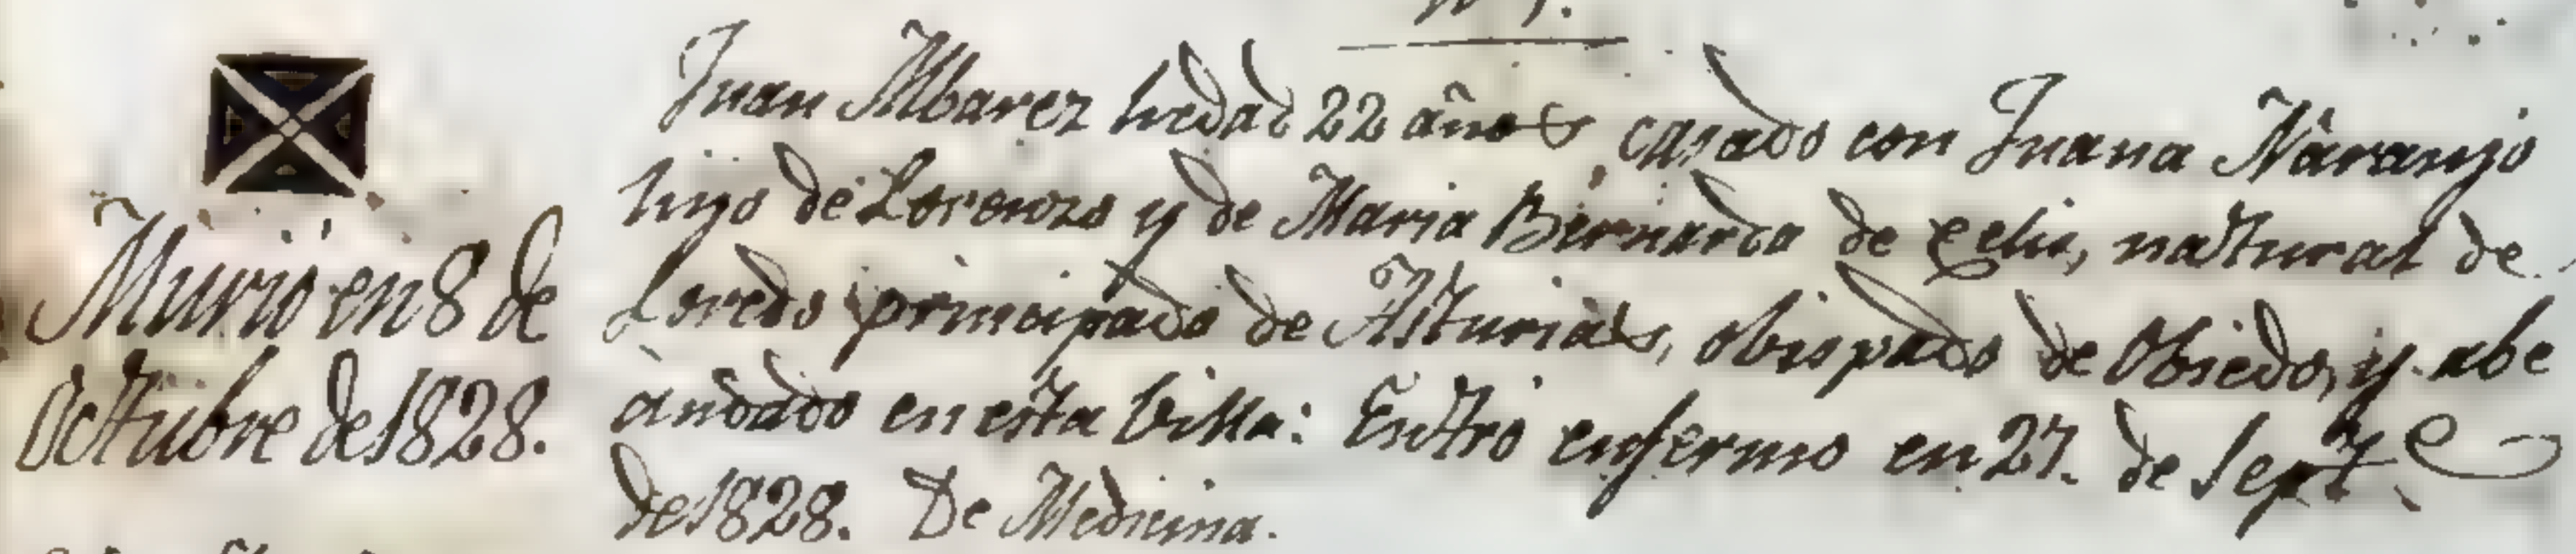 Murió en 8 de
Octubre de 1828.
Juan Albarez hedad 22 años casado con Juana Naranjo
hijo de Lorenzo y de Maria Bernarda de Celis, natural de
Loredo principado de Asturias, obispado de Obiedo, y abe
cindado en esta Villa: Entró enfermo en 27. de Sept.e
de 1828. De Medicina.